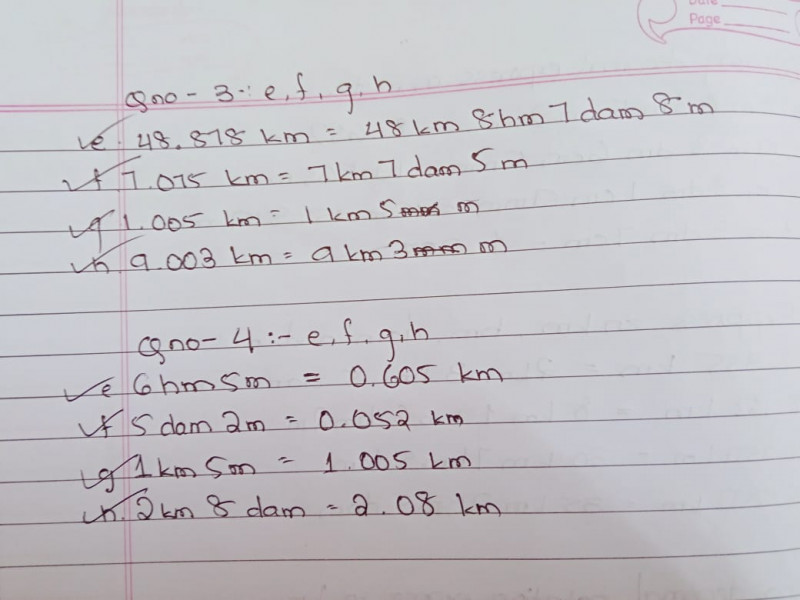 Date
Page
Qno - 3 :- e, f, g, h
e. 48.878 km = 48 km 8hm 7 dam 8 m
f 7.075 km = 7 km 7 dam 5 m
g 1.005 km = 1 km 5 m
h. 9.003 km = 9 km 3 m
Qno - 4 :- e, f, g, h
e 6hm 5m = 0.605 km
f 5 dam 2m = 0.052 km
g 1 km 5m = 1.005 km
h. 2km 8 dam = 2.08 km